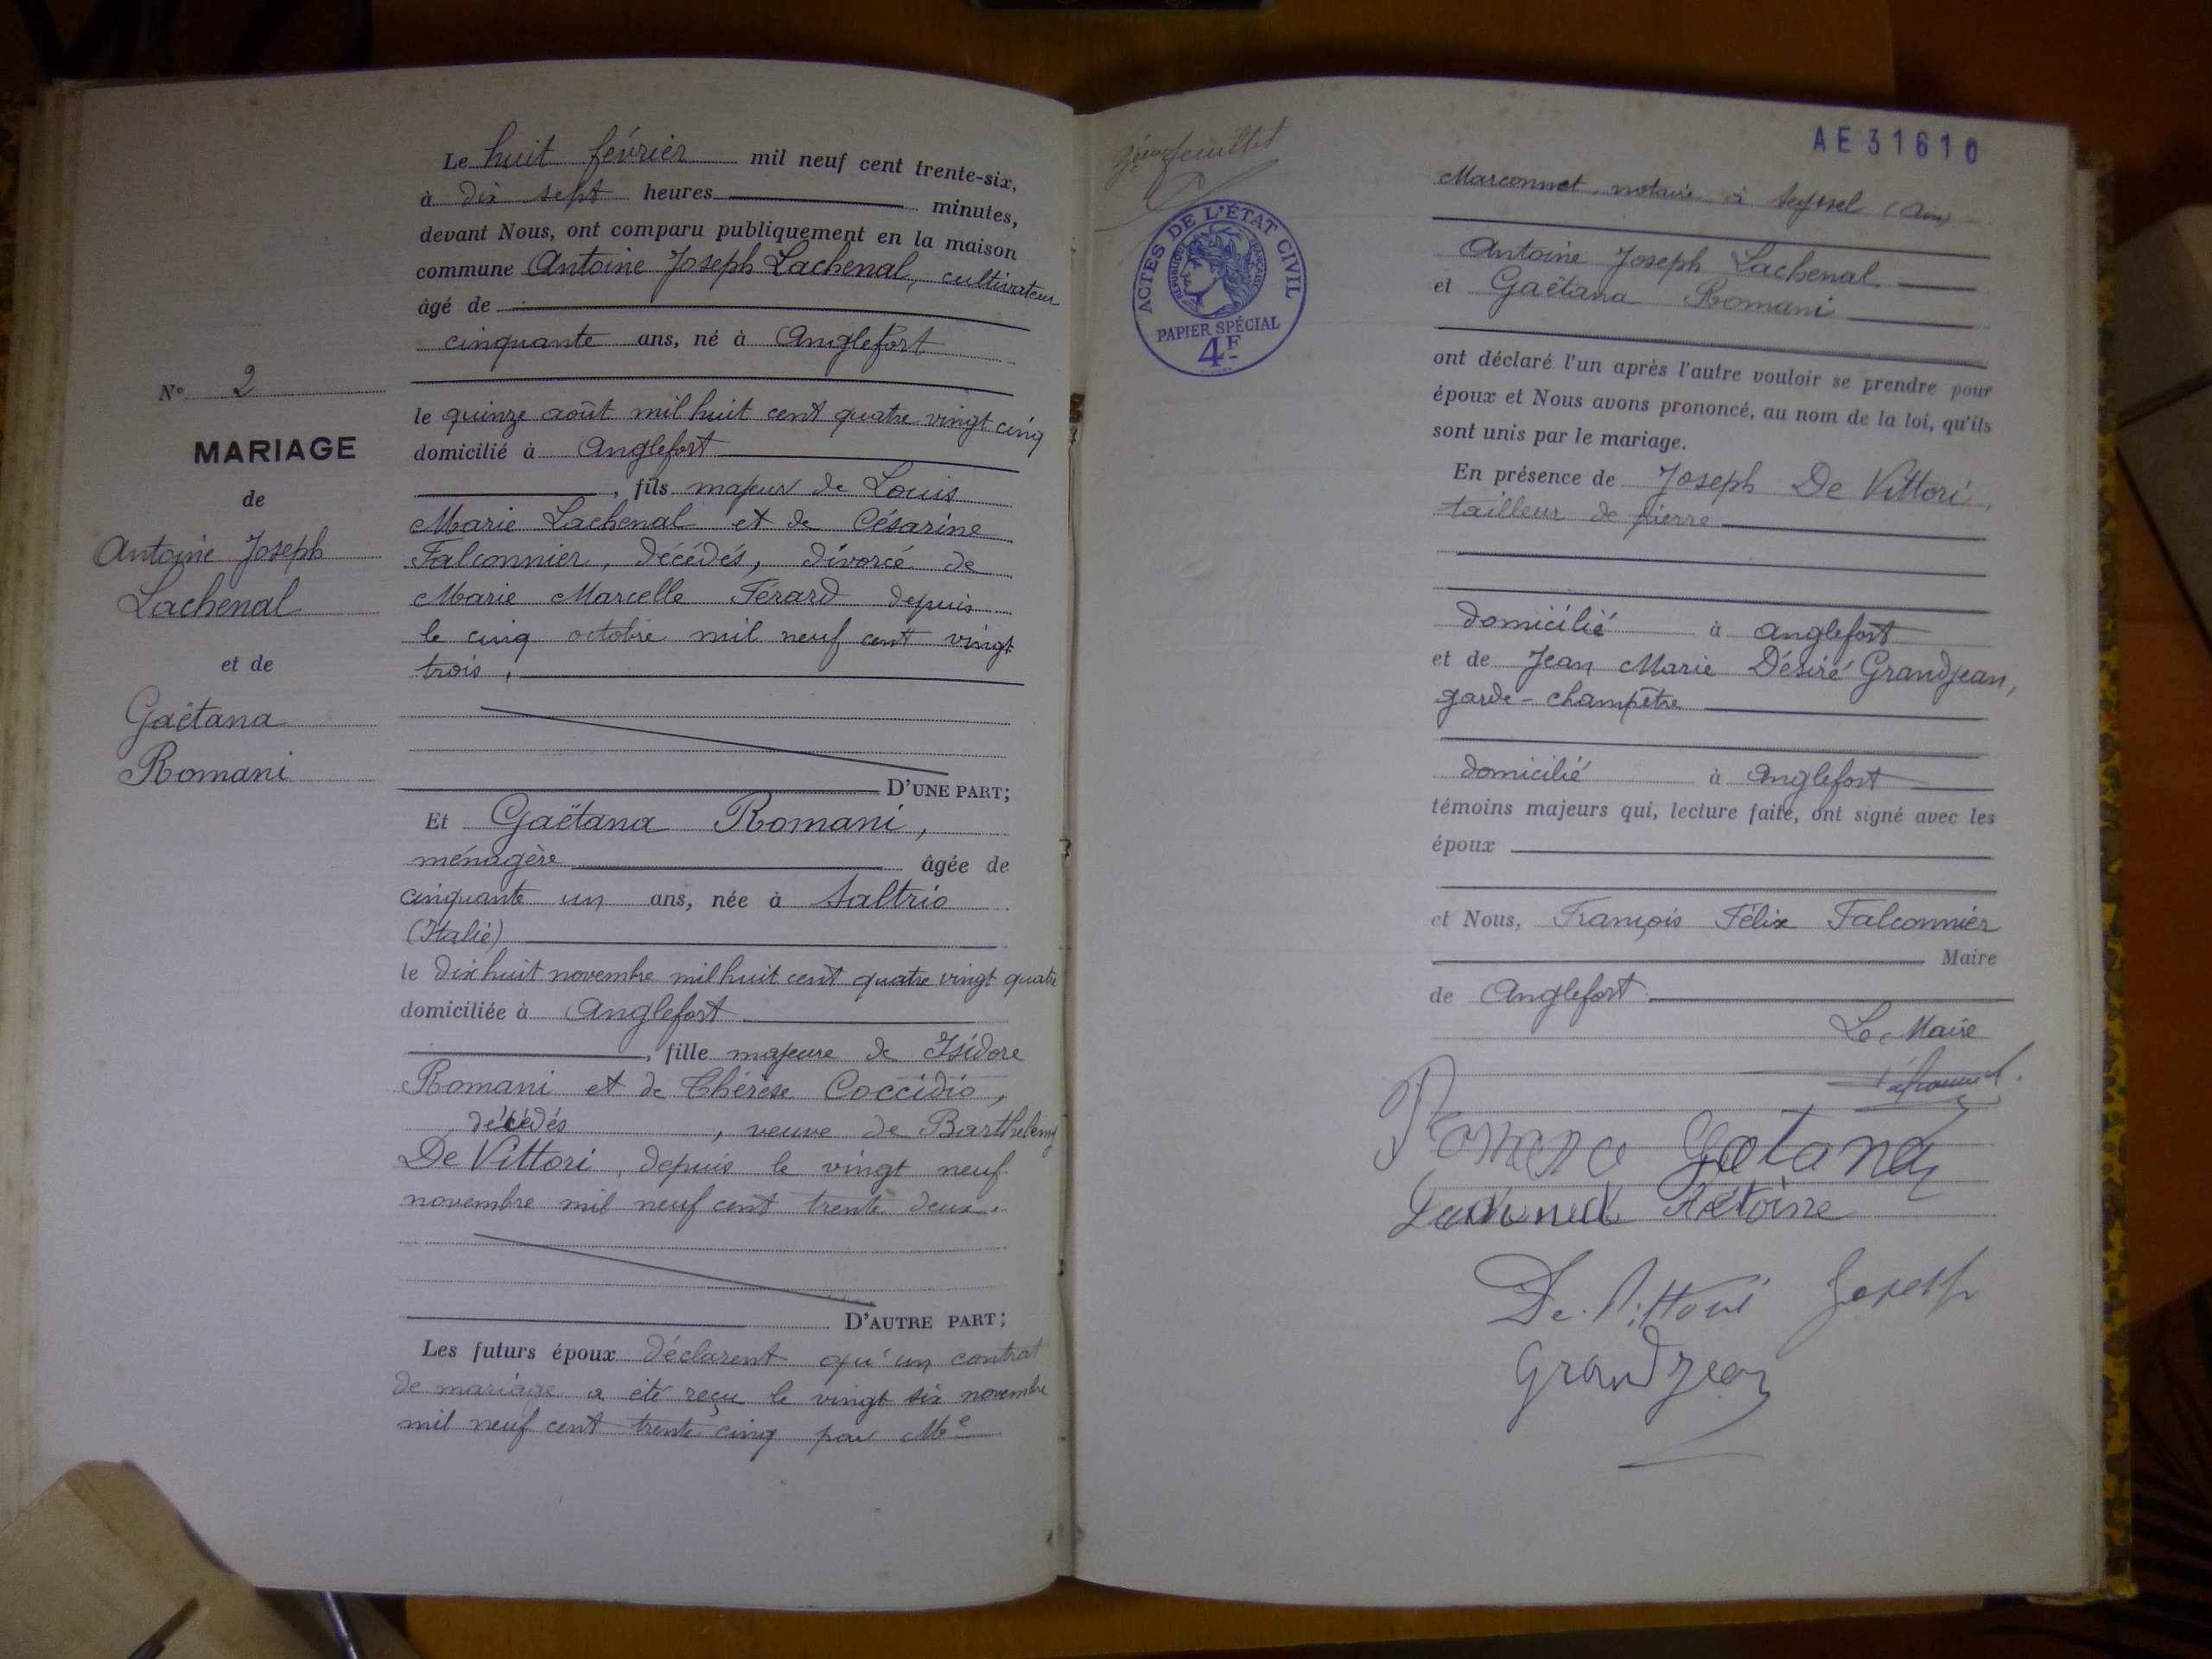 N° 2
MARIAGE
de
Antoine Joseph
Lachenal
et de
Gaëtana
Romani
Le huit février mil neuf cent trente-six,
à dix sept heures minutes,
devant Nous, ont comparu publiquement en la maison
commune Antoine Joseph Lachenal, cultivateur
âgé de
cinquante ans, né à Anglefort
le quinze août mil huit cent quatre vingt cinq
domicilié à Anglefort
, fils majeur de Louis
Marie Lachenal et de Césarine
Falconnier, décédés, divorcé de
Marie Marcelle Férard depuis
le cinq octobre mil neuf cent vingt
trois.
D'UNE PART;
Et Gaëtana Romani,
ménagère âgée de
cinquante un ans, née à Saltrio
(Italie)
le dix huit novembre mil huit cent quatre vingt quatre
domiciliée à Anglefort
, fille majeure de Isidore
Romani et de Thérèse Coccidio,
décédés, veuve de Barthélemy
De Vittori, depuis le vingt neuf
novembre mil neuf cent trente deux.
D'AUTRE PART;
Les futurs époux déclarent qu'un contrat
de mariage a été reçu le vingt six novembre
mil neuf cent trente cinq par Me
feuillet
ACTES DE L'ÉTAT CIVIL
RÉPUBLIQUE FRANÇAISE
PAPIER SPÉCIAL
4F
AE31610
Marconnet, notaire à Seyssel (Ain)
Antoine Joseph Lachenal
et Gaëtana Romani
ont déclaré l'un après l'autre vouloir se prendre pour
époux et Nous avons prononcé, au nom de la loi, qu'ils
sont unis par le mariage.
En présence de Joseph De Vittori,
tailleur de pierre
domicilié à Anglefort
et de Jean Marie Désiré Grandjean,
garde-champêtre
domicilié à Anglefort
témoins majeurs qui, lecture faite, ont signé avec les
époux
et Nous, François Félix Falconnier
Maire
de Anglefort
Le Maire
Gatana
De Vittori Joseph
Grandjean